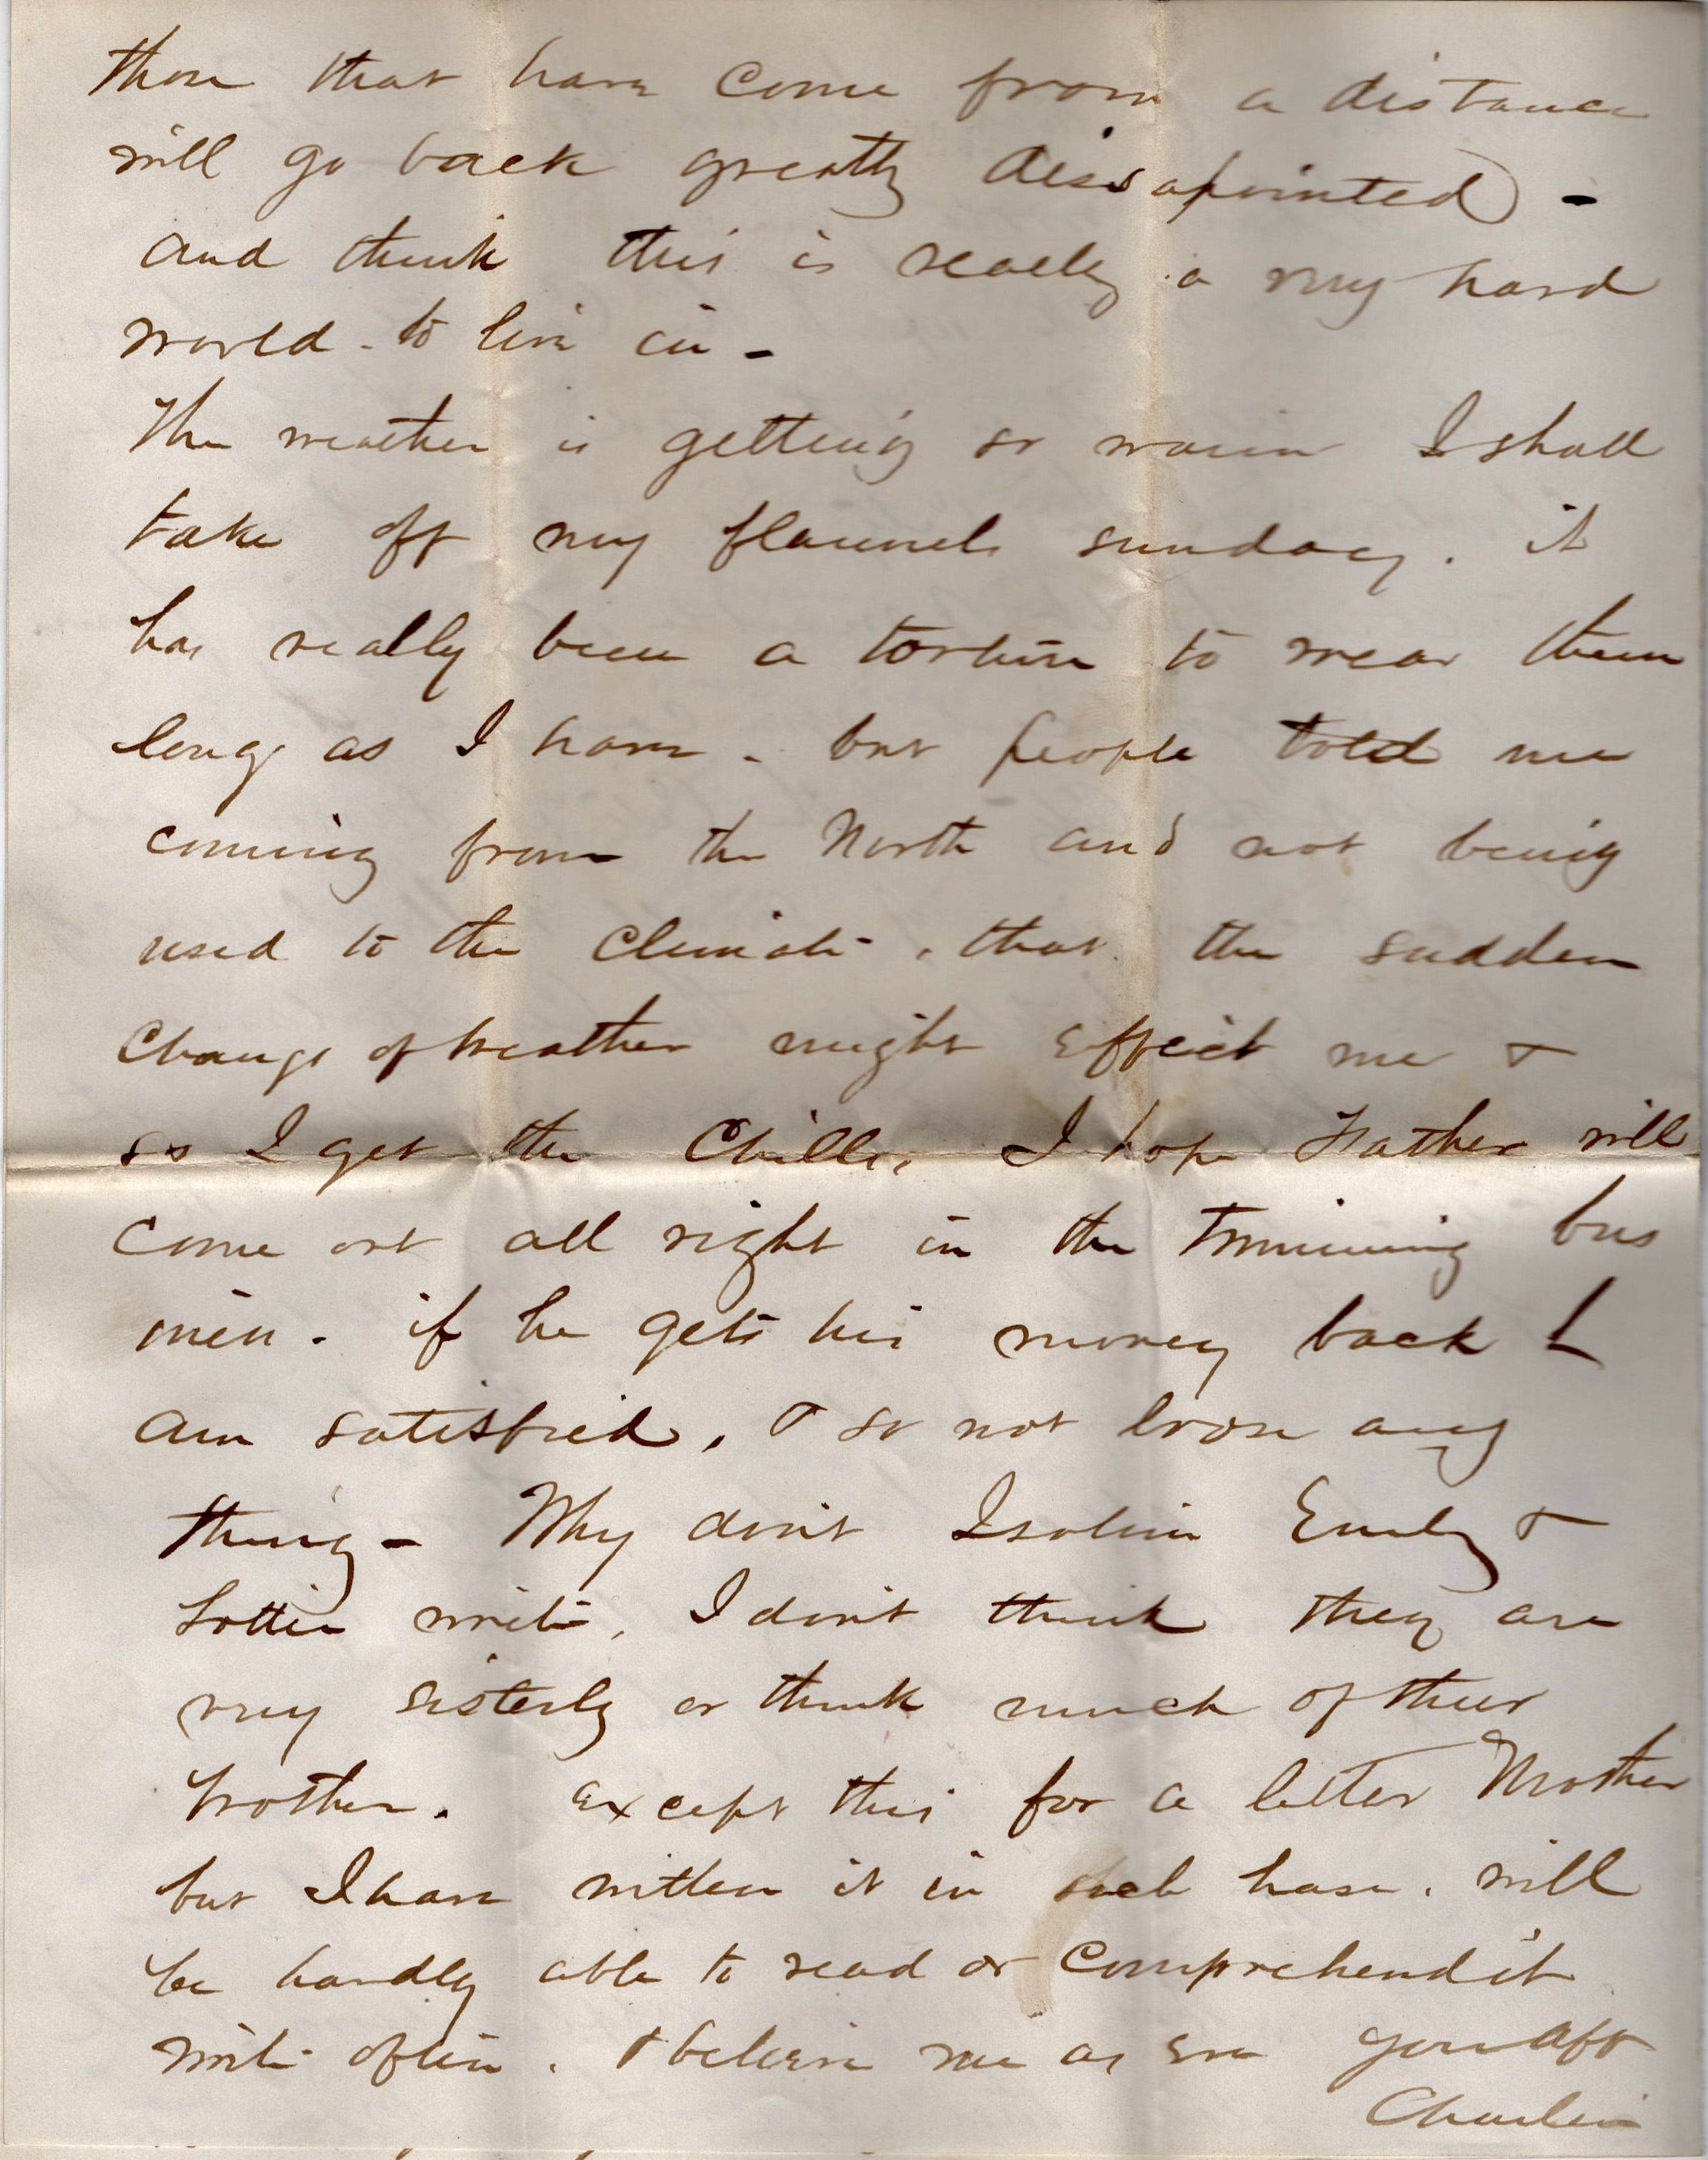 those that have come from a distance
will go back greatly dissapointed -
and think this is really a very hard
world - to live in -
The weather is getting so warm I shall
take off my flannels sunday. it
has really been a torture to wear them
long as I have - but people told me
coming from the North and not being
used to the Climate, that the sudden
Change of weather might effect me &
so I get the Chills, I hope Father will
come out all right in the Trimming bus
iness - if he gets his money back I
am satisfied, & so not loose any
thing - Why don't Isoline Emily &
Lottie write, I don't think they are
very sisterly or think much of their
brother. except this for a letter Mother
but I have written it in such hase. will
be hardly able to read or Comprehend it
write often. & believe me as ever your Afft
Charlie